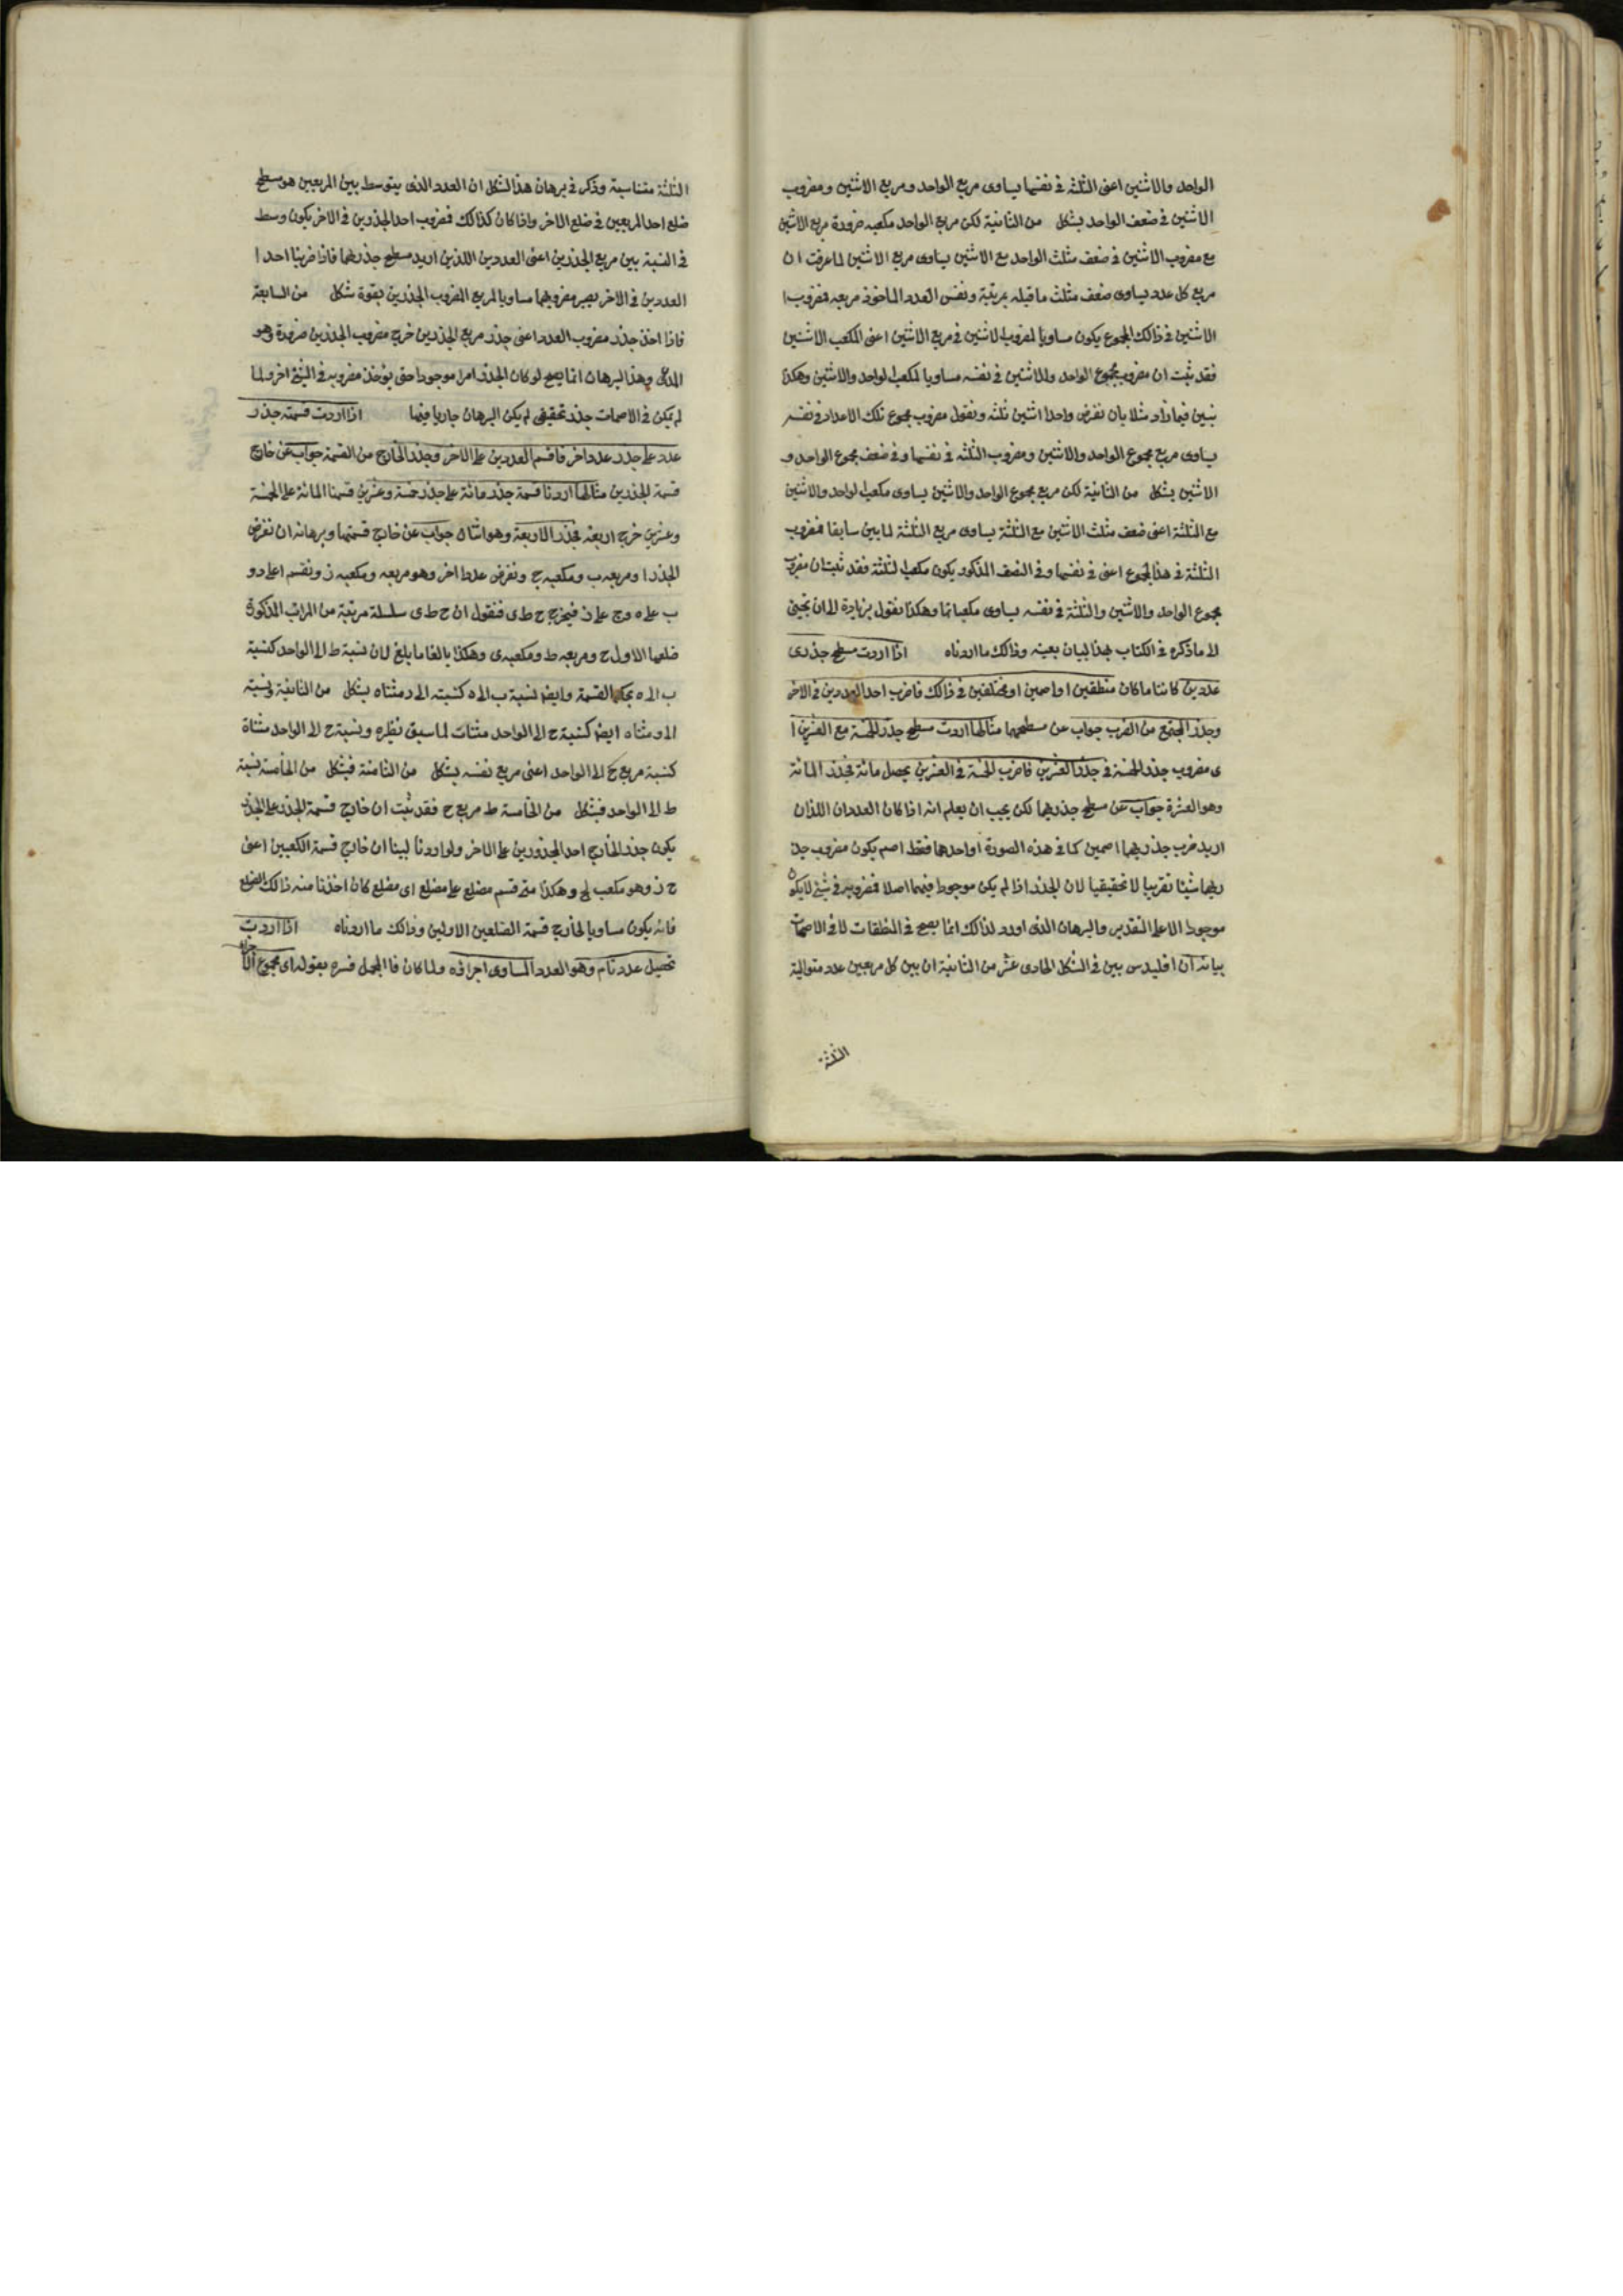 الواحد والاثنين اعنى الثلثة فى نفسها يساوى مربع الواحد ومربع الاثنين ومضروب
الاثنين فى ضعف الواحد بشكل من الثانية لكن مربع الواحد مكعبه ضرورة مربع الاثنين
مع مضروب الاثنين فى ضعف مثلث الواحد مع الاثنين يساوى مربع الاثنين لما عرفت ان
مربع كل عدد يساوى ضعف مثلث ما قبله بمرتبة ونفس العدد الماخوذ مربعه فمضروب ا
الاثنين فى ذالك المجموع يكون مساويا لمضروب الاثنين فى مربع الاثنين اعنى المكعب الاثنين
فقد ثبت ان مضروب مجموع الواحد والاثنين فى نفسه مساويا لمكعب الواحد والاثنين وهكذا
نبين فيما زاد مثلا بان نفرض واحدا اثنين ثلثه ونقول مضروب مجموع تلك الاعداد فى نفسه
يساوى مربع مجموع الواحد والاثنين ومضروب الثلثه فى نفسها وفى ضعف مجموع الواحد و
الاثنين بشكل من الثانية لكن مربع مجموع الواحد والاثنين يساوى مكعب الواحد والاثنين
مع الثلثة اعنى ضعف مثلث الاثنين مع الثلثة يساوى مربع الثلثة لما بين سابقا فمضروب
الثلثة فى هذا المجموع اعنى فى نفسها وفى الضعف المذكور يكون مكعب الثلثة فقد ثبت ان مضروب
مجموع الواحد والاثنين والثلثة فى نفسه يساوى مكعباتها وهكذا نقول بزيادة الى ان يجيئ
الى ما ذكره فى الكتاب بهذا البيان بعينه وذالك ما اردناه اذا اردت مسطح جذرى
عددين كانتا ما كان منطقين او اصمين او مختلفين فى ذالك فاضرب احد العددين فى الاخر
وجذر المجتمع من الضرب جواب عن مسطحهما مثالها اردت مسطح جذر الخمسة مع العشرين ا
ى مضروب جذر الخمسة فى جذر العشرين فاضرب الخمسة فى العشرين يحصل مائة فجذر المائة
وهو العشرة جواب عن مسطح جذريهما لكن يجب ان يعلم انه اذا كان العددان اللذان
اريد ضرب جذريهما اصمين كما فى هذه الصورة او احدهما فقط اصم يكون مضروب جذ
ريهما شيئا تقريبيا لا تحقيقيا لان الجذر اذا لم يكن موجودا فيهما اصلا فمضروبه فى شيئ لا يكون
موجودا الا على التقدير والبرهان الذى اورد لذالك انما يصح فى المنطقات لا فى الاصمات
بيانه ان اقليدس بين فى الشكل الحادى عشر من الثامنة ان بين كل مربعين عدد متوالية
الثلثة
الثلثة متناسبة وذكر فى برهان هذا الشكل ان العدد الذى يتوسط بين المربعين هو مسطح
ضلع احد المربعين فى ضلع الاخر واذا كان كذالك فمضروب احد الجذرين فى الاخر يكون وسط
فى النسبة بين مربع الجذرين اعنى العددين اللذين اريد مسطح جذريهما فاذا ضربنا احد ا
العددين فى الاخر يصير مضروبهما مساويا لمربع المضروب الجذرين بقوة شكل من السابعة
فاذا اخذ جذر مضروب العدد اعنى جذر مربع الجذرين خرج مضروب الجذرين ضرورة وهو
المدعى وهذا البرهان انما يصح لو كان الجذر امرا موجودا حتى يؤخذ مضروبه فى الشيئ اخر ولما
لم يكن فى الاصمات جذر تحقيقى لم يكن البرهان جاريا فيها اذا اردت قسمة جذر
عدد على جذر عدد اخر فاقسم العددين على الاخر وجذر الخارج من القسمة جواب عن خارج
قسمة الجذرين مثالها اردنا قسمة جذر مائة على جذر خمسة وعشرين قسمنا المائة على الخمسة
وعشرين خرج اربعة فجذر الاربعة وهو اثنان جواب عن خارج قسمتهما وبرهانه ان نفرض
الجذر ا ومربعه ب ومكعبه ج ونفرض عددا اخر وهو مربعه ومكعبه ز ونقسم ا على د و
ب على ه وج على ز فيخرج ح ط ى فنقول ان ح ط ى سلسلة مرتبة من المراتب المذكورة
ضلعها الاول ح ومربعه ط ومكعبه ى وهكذا بالغا ما بلغ لان نسبة ط الى الواحد كنسبة
ب الى ه بحكم القسمة وايضا نسبة ب الى ه كنسبته الى د مثناه بشكل من الثامنة ونسبة
ا الى د مثناه ايضا كنسبة ح الى الواحد مثنات لما سبق نظيره ونسبة ح الى الواحد مثناة
كنسبة مربع ح الى الواحد اعنى مربع نفسه بشكل من الثامنة فبشكل من الخامسة نسبة
ط الى الواحد فبشكل من الخامسة ط مربع ح فقد ثبت ان خارج قسمة الجذر على الجذر
يكون جذر الخارج احد المجذورين على الاخر ولو اردنا لبينا ان خارج قسمة الكعبين اعنى
ج ز وهو مكعب ح وهكذا متى قسم مضلع على مضلع اى مضلع كان اخذنا منه ذالك الضلع
فانه يكون مساويا لخارج قسمة الضلعين الاولين وذالك ما اردناه اذا اردت
تحصيل عدد تام وهو العدد المساوى اجزائه ولما كان المجمل فسره بقوله اى مجموع